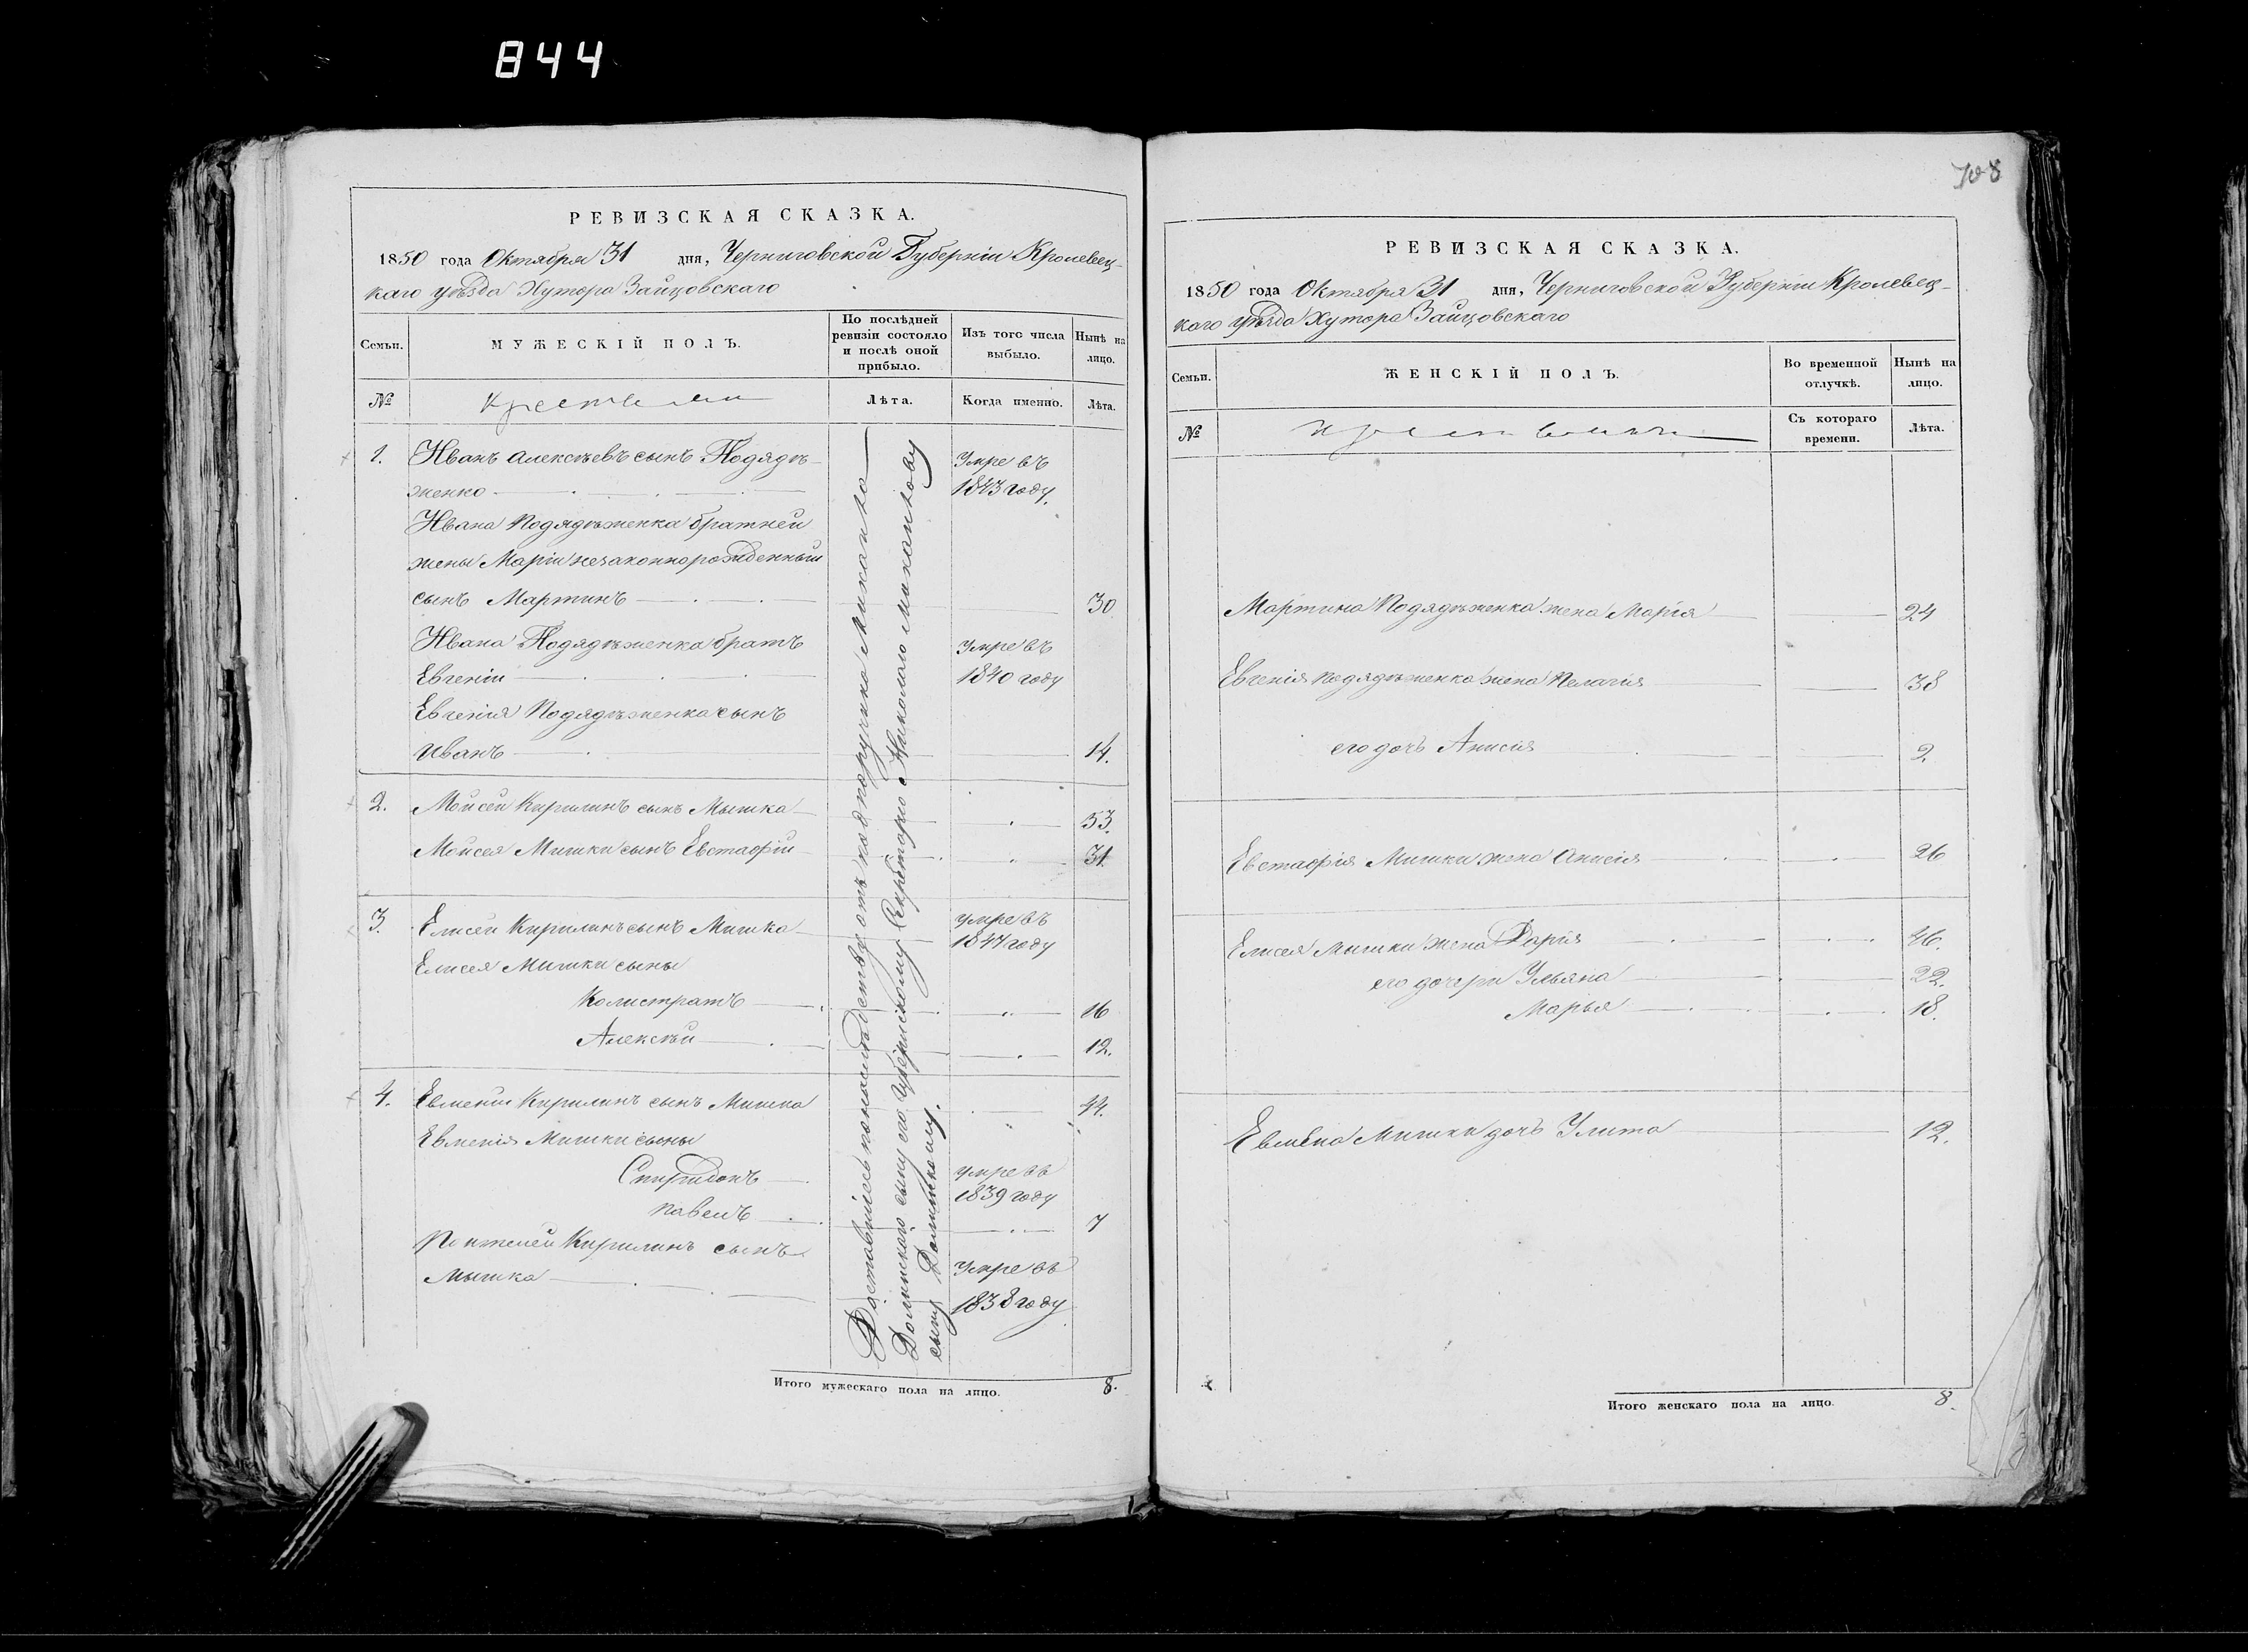 844
РЕВИЗСКАЯ СКАЗКА.
1850 года Октября 31 дня, Черниговской Губерніи Кролевец-
каго уѣзда Хутора Зайцовскаго
Семьи.
МУЖЕСКІЙ ПОЛЪ.
По послѣдней
ревизіи состояло
и послѣ оной
прибыло.
Изъ того числа
выбыло.
Нынѣ на
лицо.
№
Крестьяни
Лѣта.
Когда именно.
Лѣта.
1. Иванъ Алексѣевъ сынъ Подядѣ- Умре въ
женко 1843 году.
Ивана Подядѣженка братней
жены Маріи незаконнорожденный
сынъ Мартинъ 30
Ивана Подядѣженка братъ умре въ
Евгеній 1840 году
Евгенія Подядѣженка сынъ
Иванъ 14.
2. Мойсей Кирилинъ сынъ Мышка 53.
Мойсея Мишки сынъ Евстафій 31.
3. Елисей Кирилинъ сынъ Мишка умре въ
1847 году
Елисея Мишки сыны
Калистратъ 16
Алексѣй 12.
4. Евменій Кирилинъ сынъ Мишка 44.
Евменія Мишки сыны
Спиридонъ умре въ
1839 году
Павелъ 7
Кирилинъ сынъ
Мышка Умре въ
1838 году
Доставшіесь по наслѣдству отъ подпоручика Миканта
Долинскаго сыну его Губернскому Секретарю Николаю Микантову
сыну Долинскому.
Итого мужескаго пола на лицо. 8.
708
РЕВИЗСКАЯ СКАЗКА.
1850 года Октября 31 дня, Черниговской Губерніи Кролевец-
каго уѣзда Хутора Зайцовскаго
Семьи.
ЖЕНСКІЙ ПОЛЪ.
Во временной
отлучкѣ.
Нынѣ на
лицо.
№
Съ котораго
времени.
Лѣта.
Мартина Подядѣженка жена Марія 24
Евгенія Подядѣженка жена Пелагія 38
его дочь Анисія 2
Евстафія Мишки жена Анисія 26
Елисея Мишки жена Дарія 46.
его дочери Ульяна 22.
Марья 18.
Евмена Мишки дочь Улита 12.
Итого женскаго пола на лицо. 8.